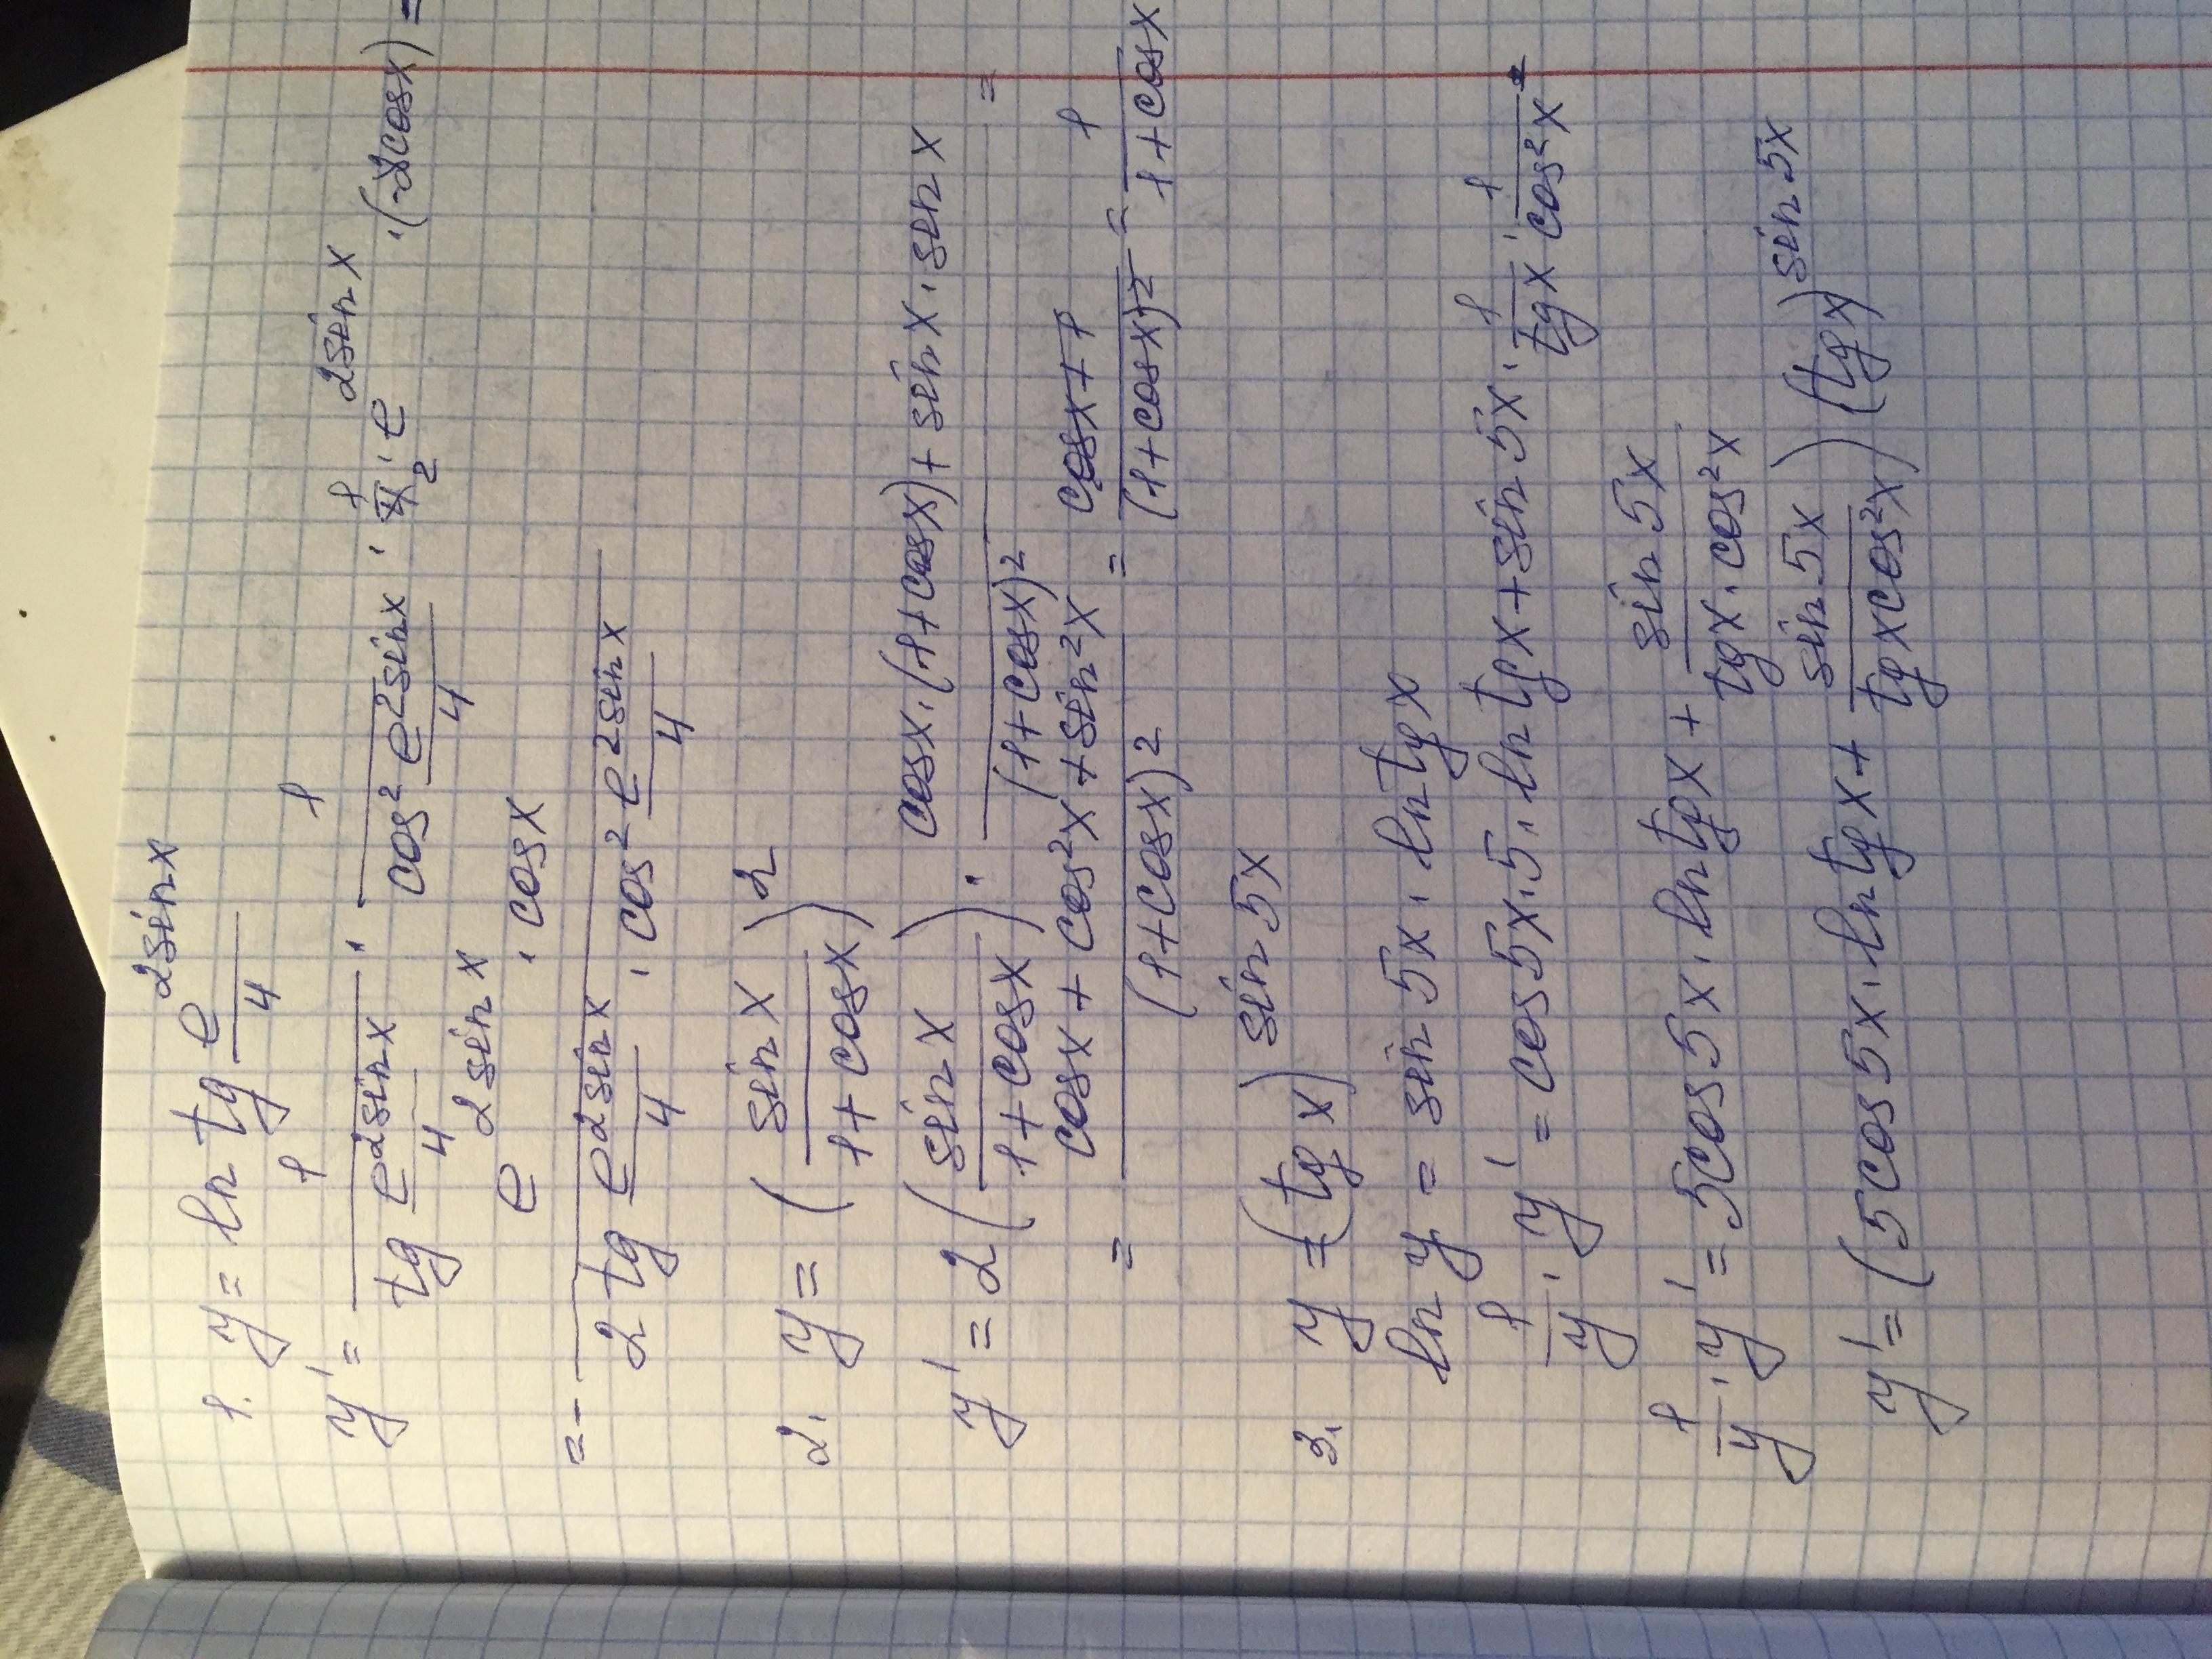 1. y = ln tg e^(2sinx)/4
y' = 1/(tg e^(2sinx)/4) · 1/(cos² e^(2sinx)/4) · 1/4 2 · e^(2sinx) · (-2cosx) =
= - (e^(2sinx) · cosx)/(2 tg e^(2sinx)/4 · cos² e^(2sinx)/4)
2. y = (sinx/(1+cosx))²
y' = 2(sinx/(1+cosx)) · (cosx·(1+cosx)+sinx·sinx)/(1+cosx)² =
= (cosx+cos²x+sin²x)/(1+cosx)² = (cosx+1)/(1+cosx)² = 1/(1+cosx)
3. y = (tgx)^(sin5x)
ln y = sin5x · ln tgx
1/y · y' = cos5x·5·ln tgx + sin5x · 1/tgx · 1/cos²x
1/y · y' = 5cos5x · ln tgx + sin5x/(tgx·cos²x)
y' = (5cos5x · ln tgx + sin5x/(tgxcos²x))(tgx)^(sin5x)